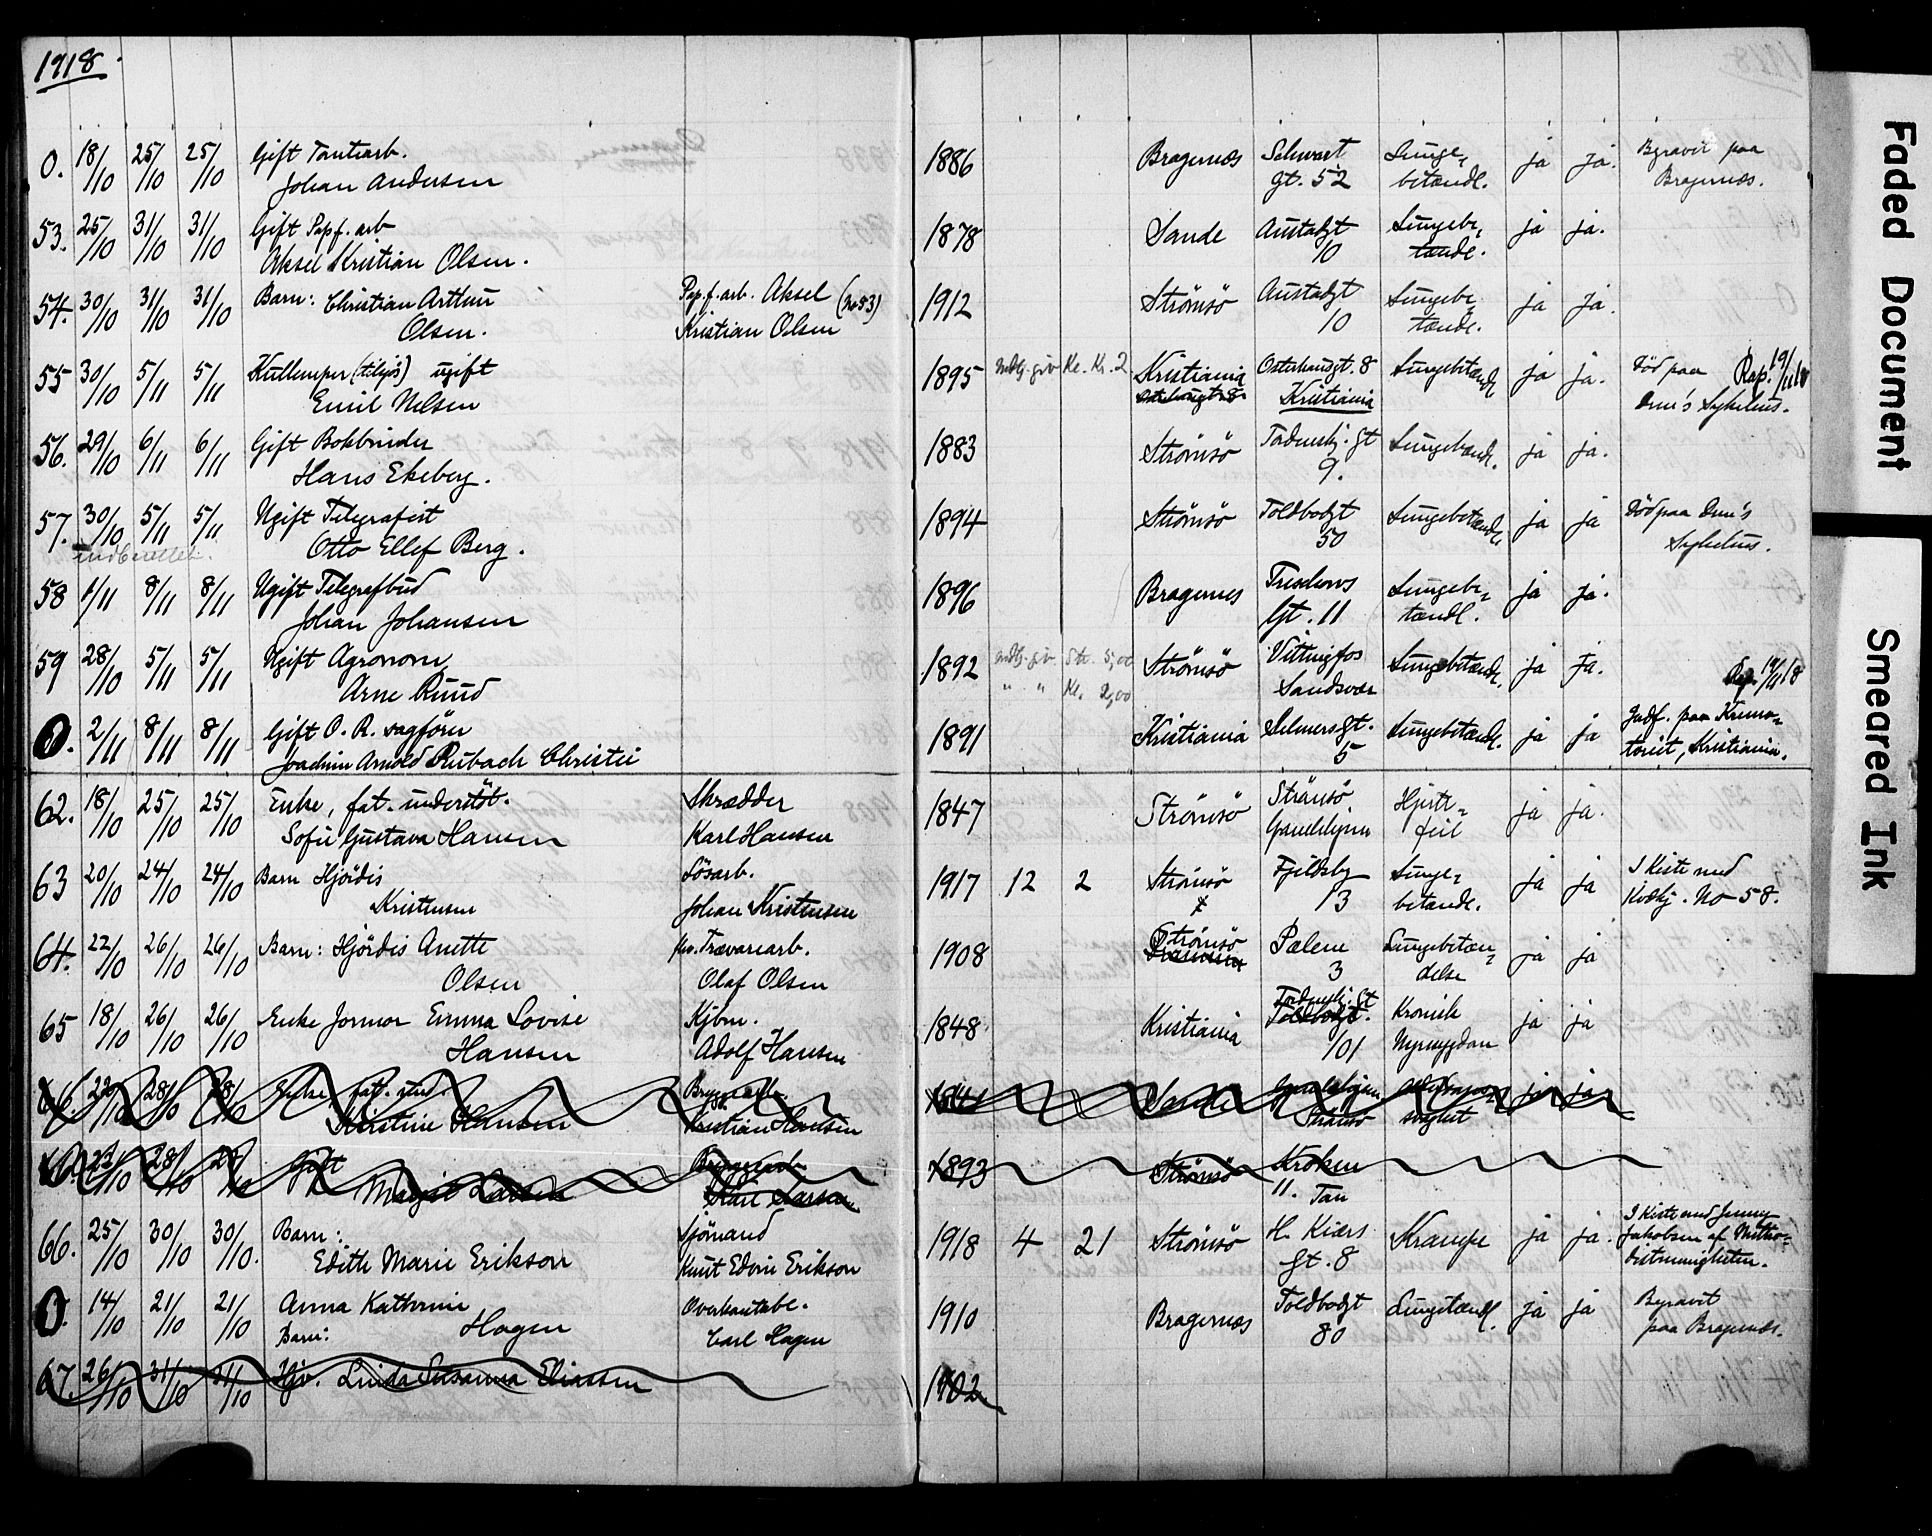 1918
0. 18/10 25/10 25/10 Gift Tomtearb. 1886 Bragernes Schwart Lunge- ja ja. Begravet paa
Johan Andersen gt. 52 betændl. Bragernes.
53. 25/10 31/10 31/10 Gift Papf. arb 1878 Sande Austadgt Lungebe- ja ja.
Aksel Kristian Olsen. 10 tændl.
54. 30/10 31/10 31/10 Barn: Christian Arthur Pap.f.arb. Aksel (no 53) 1912 Strömsö Austadgt Lungebe- ja ja.
Olsen. Kristian Olsen 10 tændl.
55 30/10 5/11 5/11 ugift 1895 Kr. 2 Kristiania Osterhausgt. 8 Lungebetændl ja ja. Död paa Rap. 19/11 18
Emil Nelsen Kristiania Drm's Sykehus.
56. 29/10 6/11 6/11 Gift Bokbinder 1883 Strömsö Tordenskj. gt Lungebændl. ja ja.
Hans Ekeberg. 9.
57. 30/10 5/11 5/11 Ugift Telegrafist 1894 Strömsö Toldbodgt Lungebetændl. ja ja Död paa Drm's
indberettet. Otto Ellef Berg. 50 Sykehus.
58 1/11 8/11 8/11 Ugift Telegrafbud 1896 Bragernes Lungebe- ja ja.
Johan Johansen Gt. 11 tændl.
59 28/10 5/11 5/11 Ugift Agronom 1892 Str. 5,00 Strömsö Vittingfos Lungebetændl. ja ja. Rap. 19/11 18
Arne Ruud " " Kr. 2,00 Sandsvær
0. 2/11 8/11 8/11 Gift O. R. sagförer 1891 Kristiania Selmersgt. Lungebetændl. ja ja Indf. paa Krema-
Joachim Arnold Rubach Christie 5 toriet, Kristiania.
62. 18/10 25/10 25/10 Enke, fat. understöt. Skrædder 1847 Strömsö Strömsö Hjerte- ja ja.
Sofie Gustava Hansen Karl Hansen Gamlehjem feil
63 20/10 24/10 24/10 Barn Hjördis Lösarb. 1917 12 2 Strömsö Fjeldsby Lunge- ja ja I Kiste med
Kristensen Johan Kristensen 13 betændl. Kvækj. No 58.
64. 22/10 26/10 26/10 Barn: Hjördis Anette Trævarearb. 1908 Strömsö Pælene Lungebetæn- ja ja
Olsen Olaf Olsen 3 delse
65 18/10 26/10 26/10 Enke Jormor Emma Lovise Kjbm. 1848 Kristiania Tordenskj. Gt Toldbodgt. Kronisk ja ja
Hansen Adolf Hansen 101 Nyresygdom
66. 22/10 28/10 28/10 Enke, fatt. und. Bryggearb. 1841 Sande Gamlehjem ja ja
Kirstine Hansen Kristian Hansen Strömsö svaghet
23/10 28/10 Gift Bryggearb 1893 Strömsö Kroken
Margit Larsen Karl Larsen 11. Tan
66. 25/10 30/10 30/10. Barn: Sjömand 1918 4 21 Strömsö H. Kiærs Krampe ja ja. I Kiste med Jenny
Edith Marie Erikson Knut Edvin Erikson gt. 8 Jakobsen af Metho-
distmenigheten.
0. 14/10 21/10 21/10 Anna Kathrine Overkonstabe. 1910 Bragernes Toldbodgt Lungetændl. ja ja Begravet
Barn: Hagen Carl Hagen 80 paa Bragernes.
67. 26/10 31/10 31/10 Hjv. Linda Susanna Eliassen 1902
Faded Document
Smeared Ink